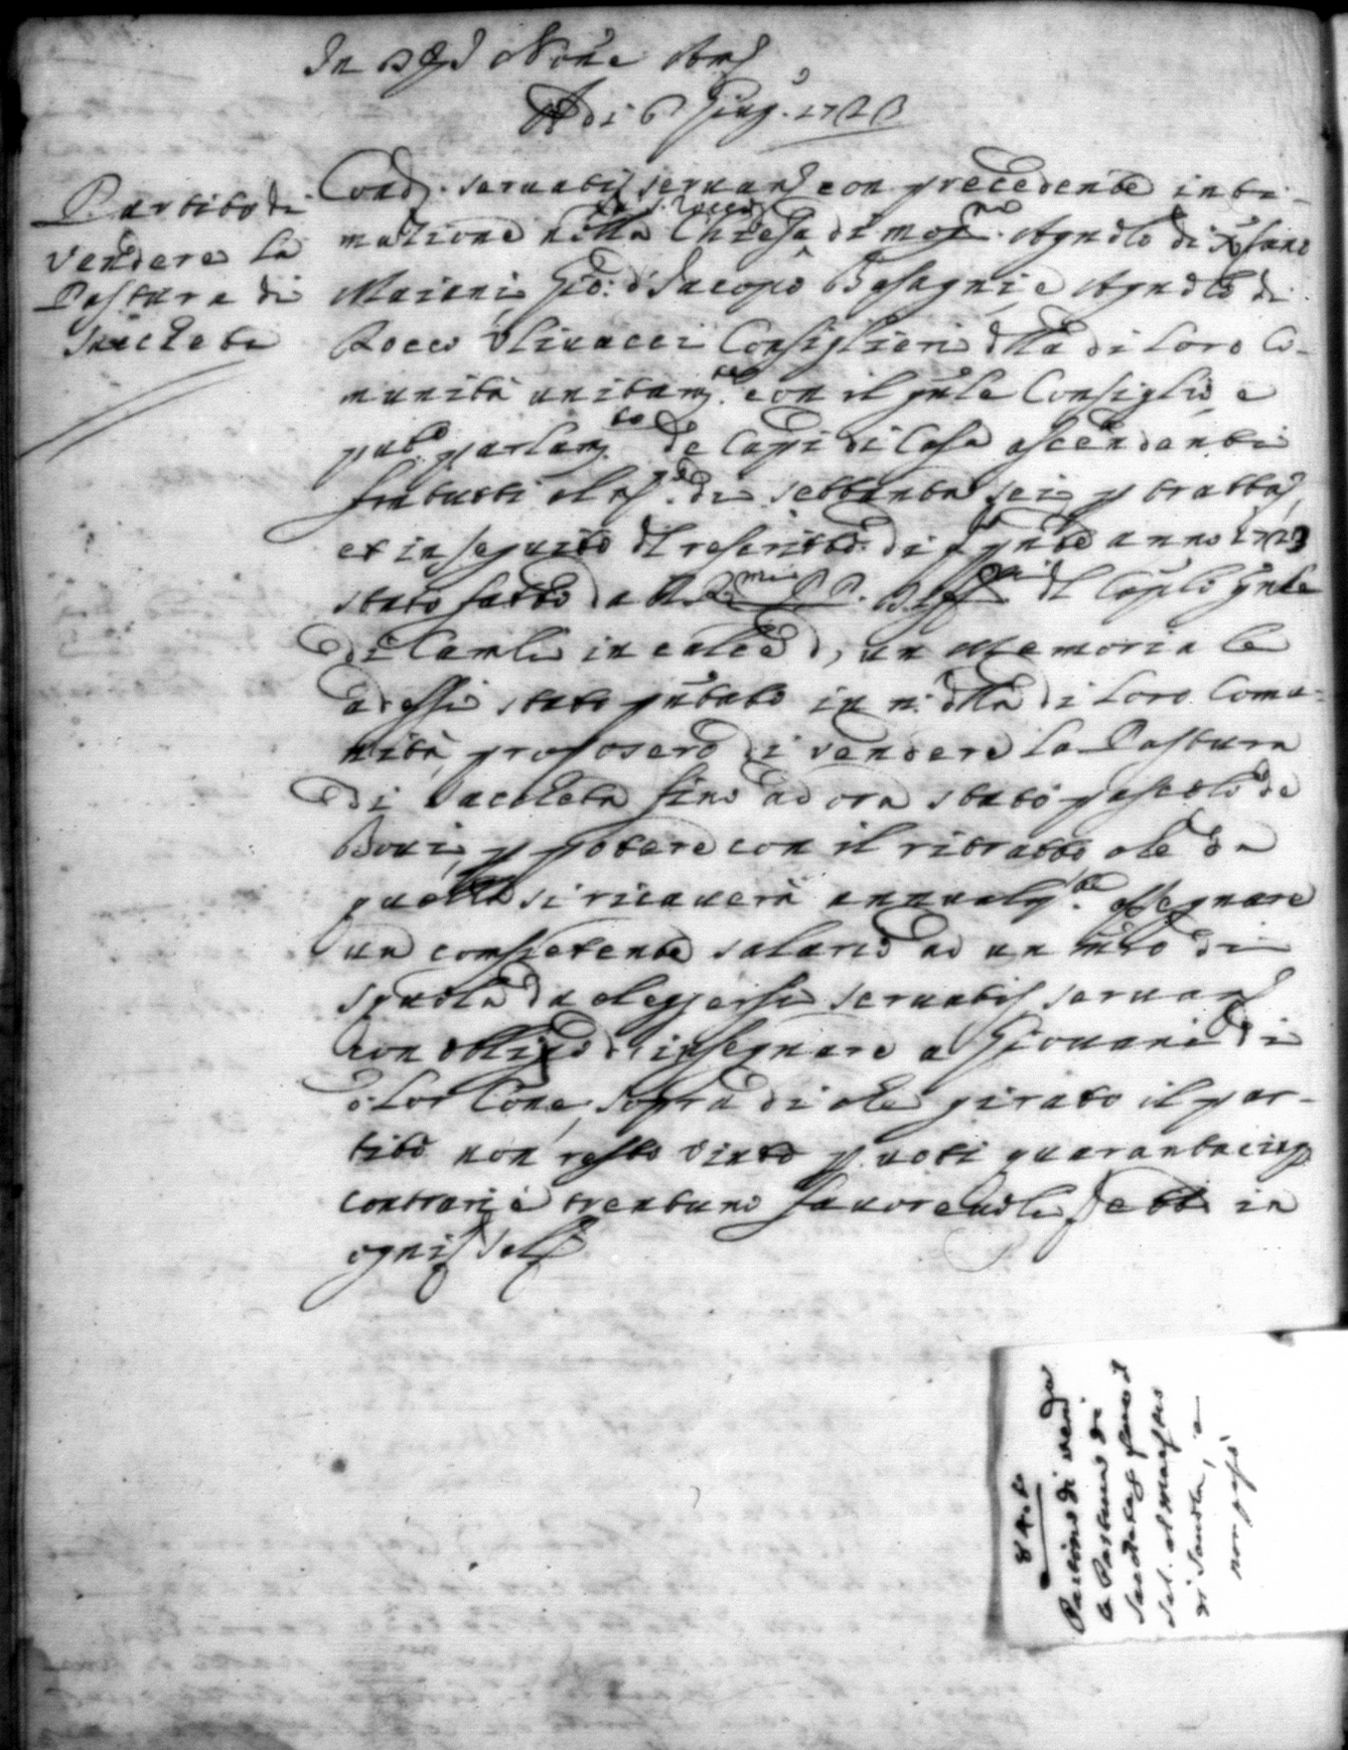 In Nome Am
Adi 6 Giug.o 172
Partito di
vendere la
Pastura di
Sacchete
Cond. servatis servan con precedente inti-
di S. Rocco
mazione nella Chiesa di Mog.no Agnolo di
Maiani, Gio: d'Iacopo Bafagni, e Agnolo di
Rocco Ulivacci Consiglieri dlla di loro Co-
munità unitam.te con il gnle Consiglio e
pub.o parlam.to de Capi di Casa ascendenti
fra tutti al di settanta sei p trattar
et in seguito dl rescritto di anno
stato fatto da R.R.mi P.P. dl Caplo gnle
di Camli in calce d, un Memoriale
ad essi stato pntato in n. dlla di loro Comu-
nità, proposero di vendere la Pastura
di Sacchete fino ad ora stato pascolo de
Bovi, p potere con il ritratto che da
quella si ricaverà annualm.te assegnare
un competente salario ad un mro di
scuola da eleggersi servatis servan
con obbligo d' insegnare a Giovani di
d. lor Cone, sopra di che girato il par-
tito non resto vinto p voti quarantacinq
contrari e trentuno favorevoli in
ogni
84. t.
Partito di vend
la Pastura di
Sacchete
sal. al Maestro
di Scuola, e
non passò